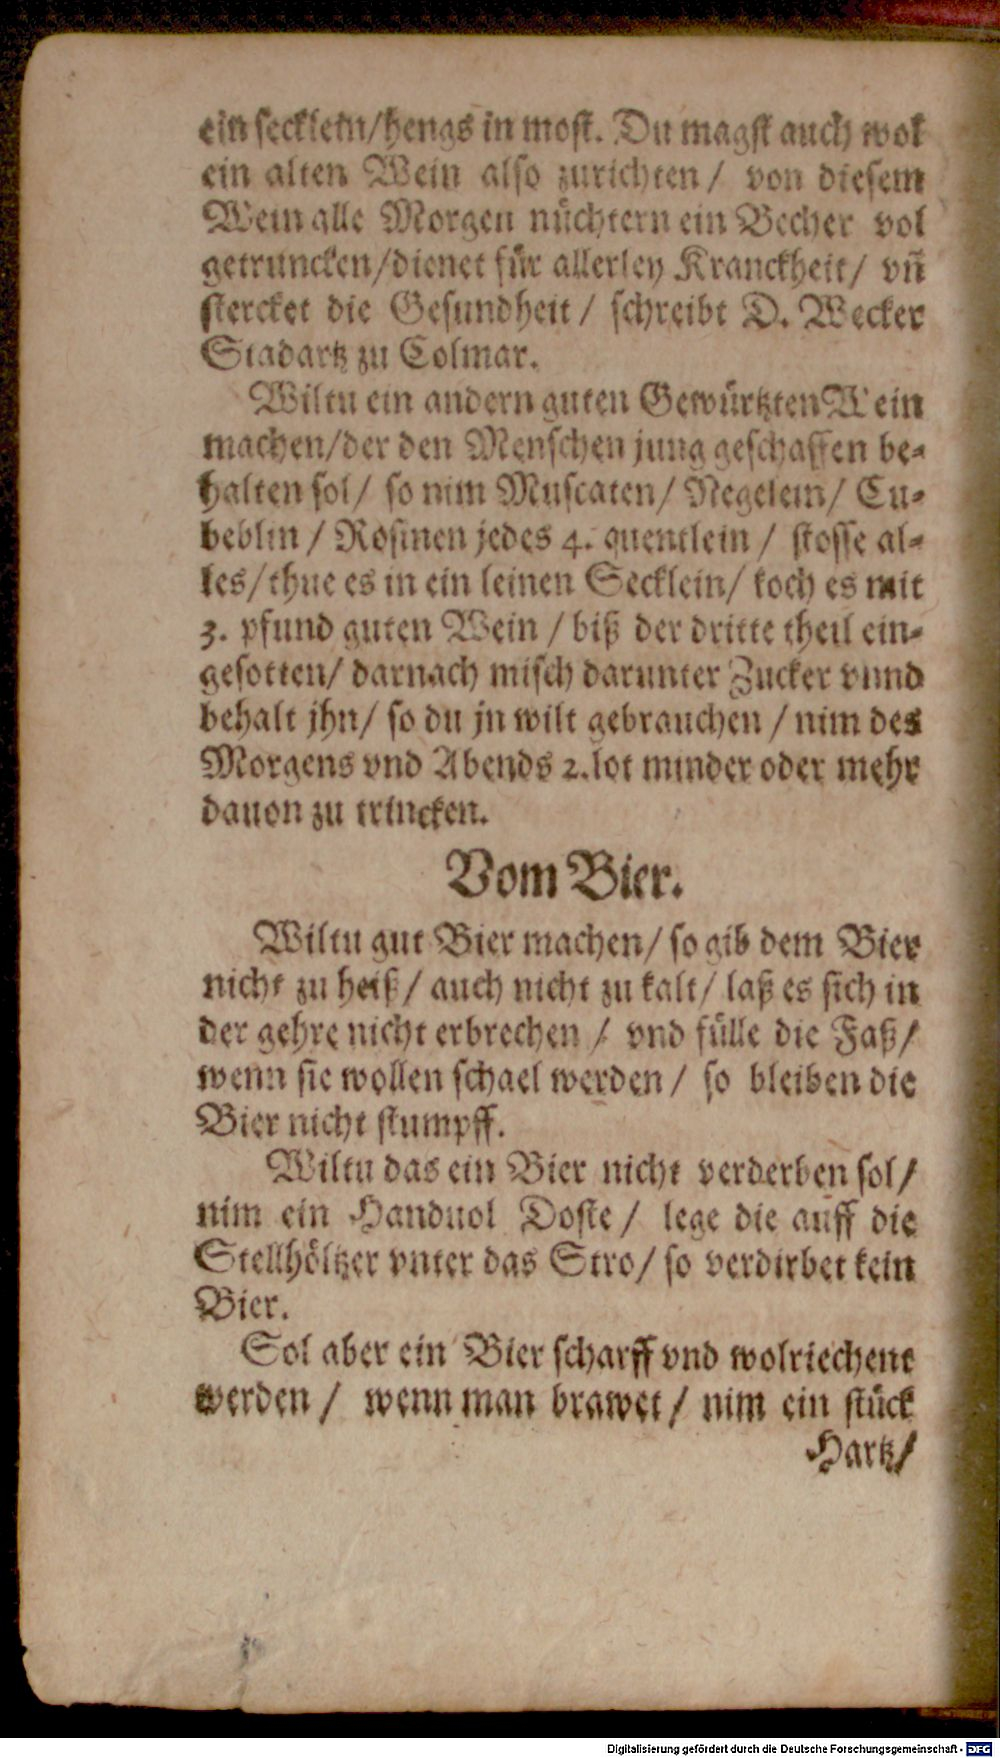 ein secklein/hengs in most. Du magst auch wol
ein alten Wein also zurichten/ von diesem
Wein alle Morgen nüchtern ein Becher vol
getruncken/dienet für allerley Kranckheit/ vñ
stercket die Gesundheit/ schreibt D. Wecker
Stadartz zu Colmar.
Wiltu ein andern guten Gewürtzten Wein
machen/der den Menschen jung geschaffen be-
halten sol/ so nim Muscaten/ Negelein/ Cu-
beblin/ Rosinen jedes 4. quentlein/ stosse al-
les/thue es in ein leinen Secklein/ koch es mit
3. pfund guten Wein/ biß der dritte theil ein-
gesotten/ darnach misch darunter Zucker vnnd
behalt jhn/ so du jn wilt gebrauchen/ nim des
Morgens vnd Abends 2. lot minder oder mehr
dauon zu trincken.
Vom Bier.
Wiltu gut Bier machen/ so gib dem Bier
nicht zu heiß/ auch nicht zu kalt/ laß es sich in
der gehre nicht erbrechen/ vnd fülle die Faß/
wenn sie wollen schael werden/ so bleiben die
Bier nicht stumpff.
Wiltu das ein Bier nicht verderben sol/
nim ein Handuol Doste/ lege die auff die
Stellhöltzer vnter das Stro/ so verdirbet kein
Bier.
Sol aber ein Bier scharff vnd wolriechent
werden/ wenn man brawet/ nim ein stück
Hartz/
Digitalisierung gefördert durch die Deutsche Forschungsgemeinschaft - DFG